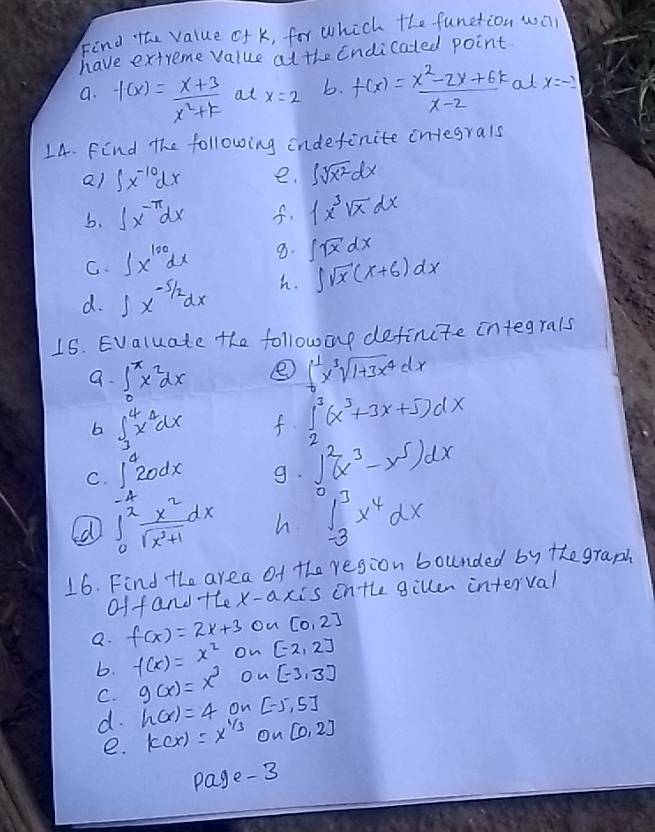 Find the value of K, for which the function will
have extreme value at the indicated point.
a. f(x) = (x+3)/(x²+k) at x=2 b. f(x) = (x²-2x+6k)/(x-2) at x=-
14. Find the following indefinite integrals
a) ∫x⁻¹⁰dx e. ∫√x² dx
b. ∫x^(-π)dx f. ∫x³√x dx
c. ∫x¹⁰⁰dx g. ∫√x dx
d. ∫x^(-5/2)dx h. ∫√x(x+6)dx
15. Evaluate the following definite integrals
a. ∫₀^π x²dx e ∫₀¹ x³√(1+3x⁴) dx
b ∫₃⁴ x⁴dx f. ∫₂³ (x³+3x+5)dx
c. ∫₋₄⁴ 20dx g. ∫₀² (x³-x⁵)dx
d ∫₀² x²/√(x³+1) dx h. ∫₋₃³ x⁴ dx
16. Find the area of the region bounded by the graph
of f and the x-axis in the given interval
a. f(x) = 2x+3 on [0,2]
b. f(x) = x² on [-2,2]
c. g(x) = x³ on [-3,3]
d. h(x) = 4 on [-5,5]
e. k(x) = x^(1/3) on [0,2]
page-3